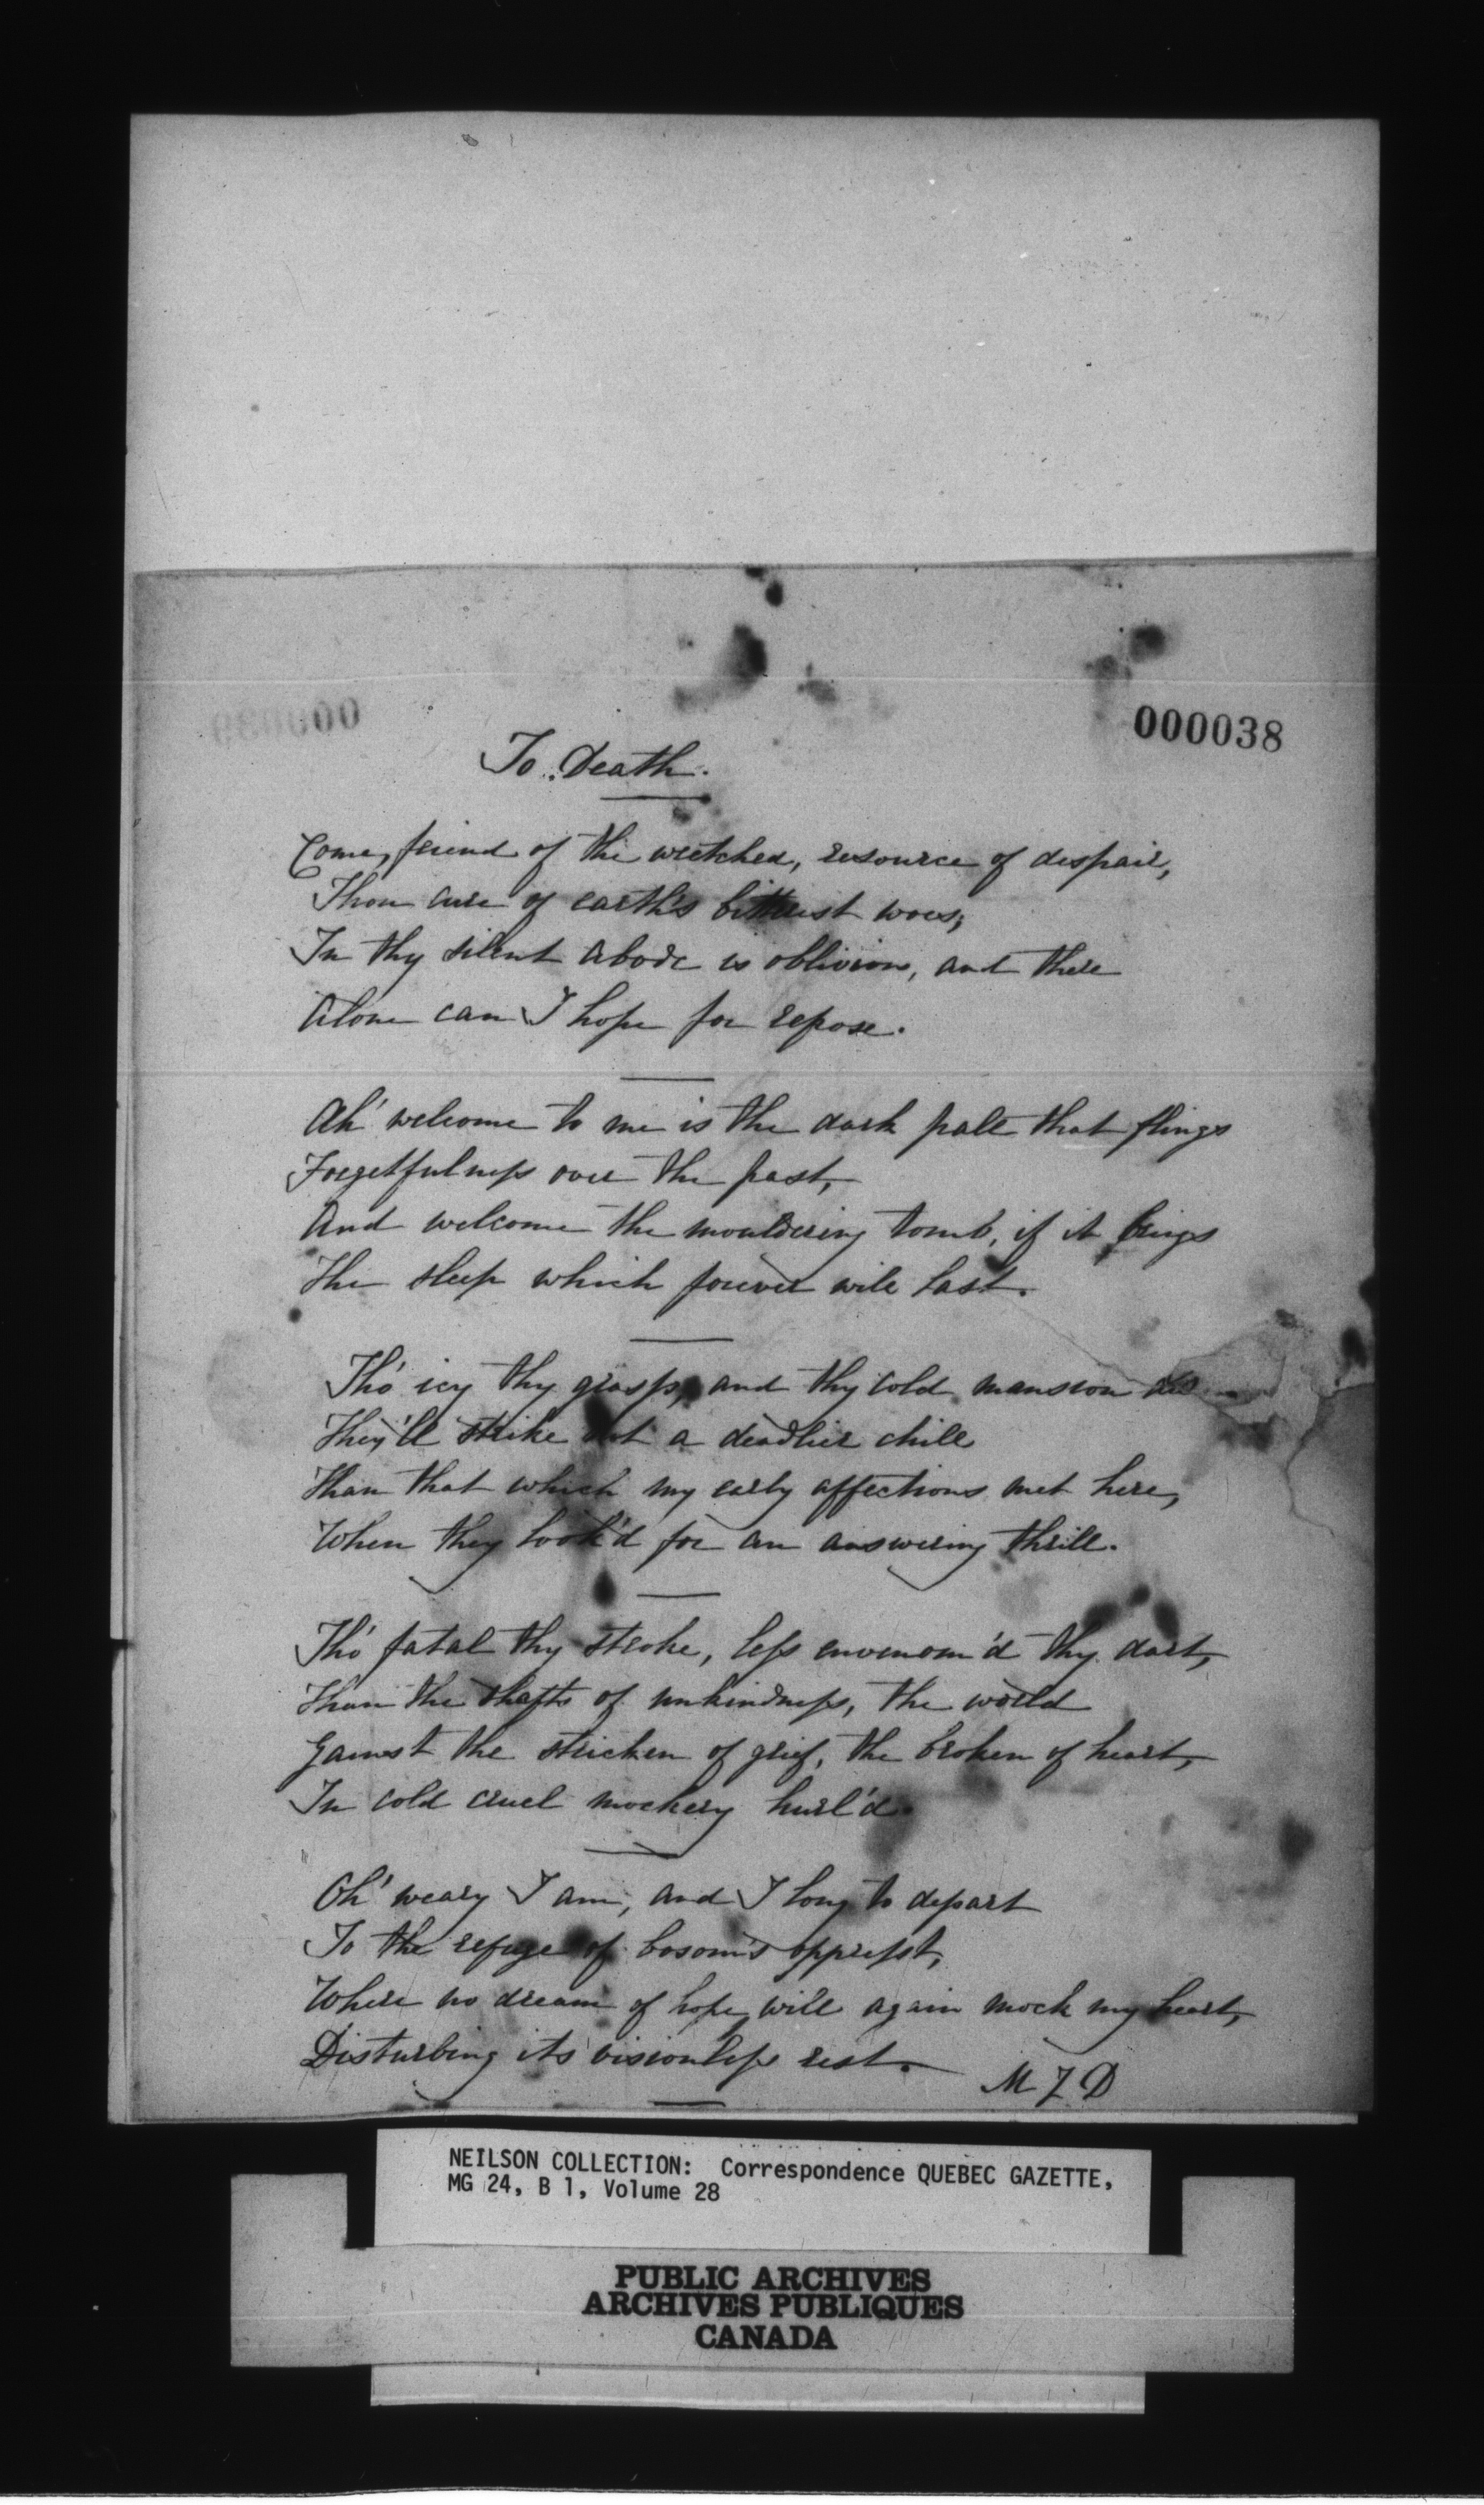 000038
To Death.
Come, friend of the wretched, resource of despair,
Thou cure of earth's bitterest woes;
In thy silent abode is oblivion, and there
Alone can I hope for repose.
Ah' welcome to me is the dark pall that flings
Forgetfulness over the past,
And welcome the mouldering tomb, if it brings
The sleep which forever will last.
Tho' icy thy grasp, and thy cold mansion
They'll strike not a deadlier chill
Than that which my early affections met here,
When they look'd for an answering thrill.
Tho' fatal thy stroke, less envenom'd thy dart,
Than the shafts of unkindness, the world
Gainst the stricken of grief, the broken of heart,
In cold cruel mockery hurl'd.
Oh' weary I am, and I long to depart
To the refuge of bosom's opprest,
Where no dream of hope will again mock my heart,
Disturbing its visionless rest.
M Z D
NEILSON COLLECTION: Correspondence QUEBEC GAZETTE,
MG 24, B 1, Volume 28
PUBLIC ARCHIVES
ARCHIVES PUBLIQUES
CANADA